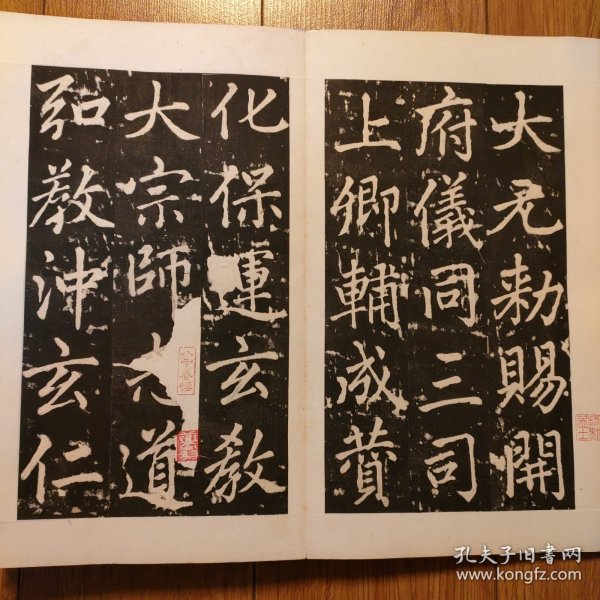 大元勅賜開
府儀同三司
上卿輔成賛
化保運玄教
大宗師志道
弘教沖玄仁
孔夫子旧书网
www.kongfz.com